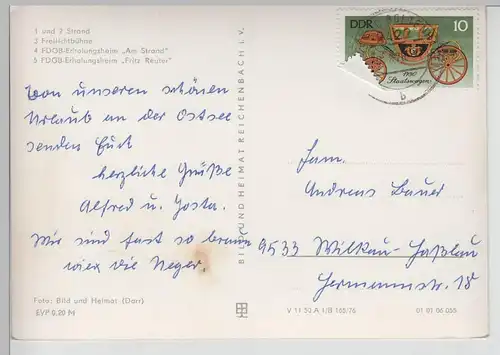 1 und 2 Strand
3 Freilichtbühne
4 FDGB-Erholungsheim „Am Strand"
5 FDGB-Erholungsheim „Fritz Reuter"
Von unseren schönen
Urlaub an der Ostsee
senden Euch
herzliche Grüße
Alfred u.
Wir sind fast so braun
wie die Neger.
Foto: Bild und Heimat (Darr)
EVP 0.20 M
BILD UND HEIMAT REICHENBACH i. V.
DDR
10
1790
Staatswagen
b
Fam.
Andreas Bauer
9533 Wilkau-Haßlau
Hermannstr. 18
V 11 50 A 1/B 165/76
01 01 06 055